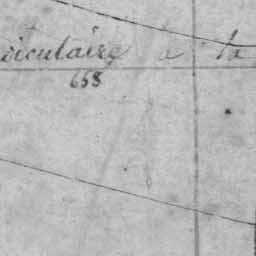 diculaire à la
658